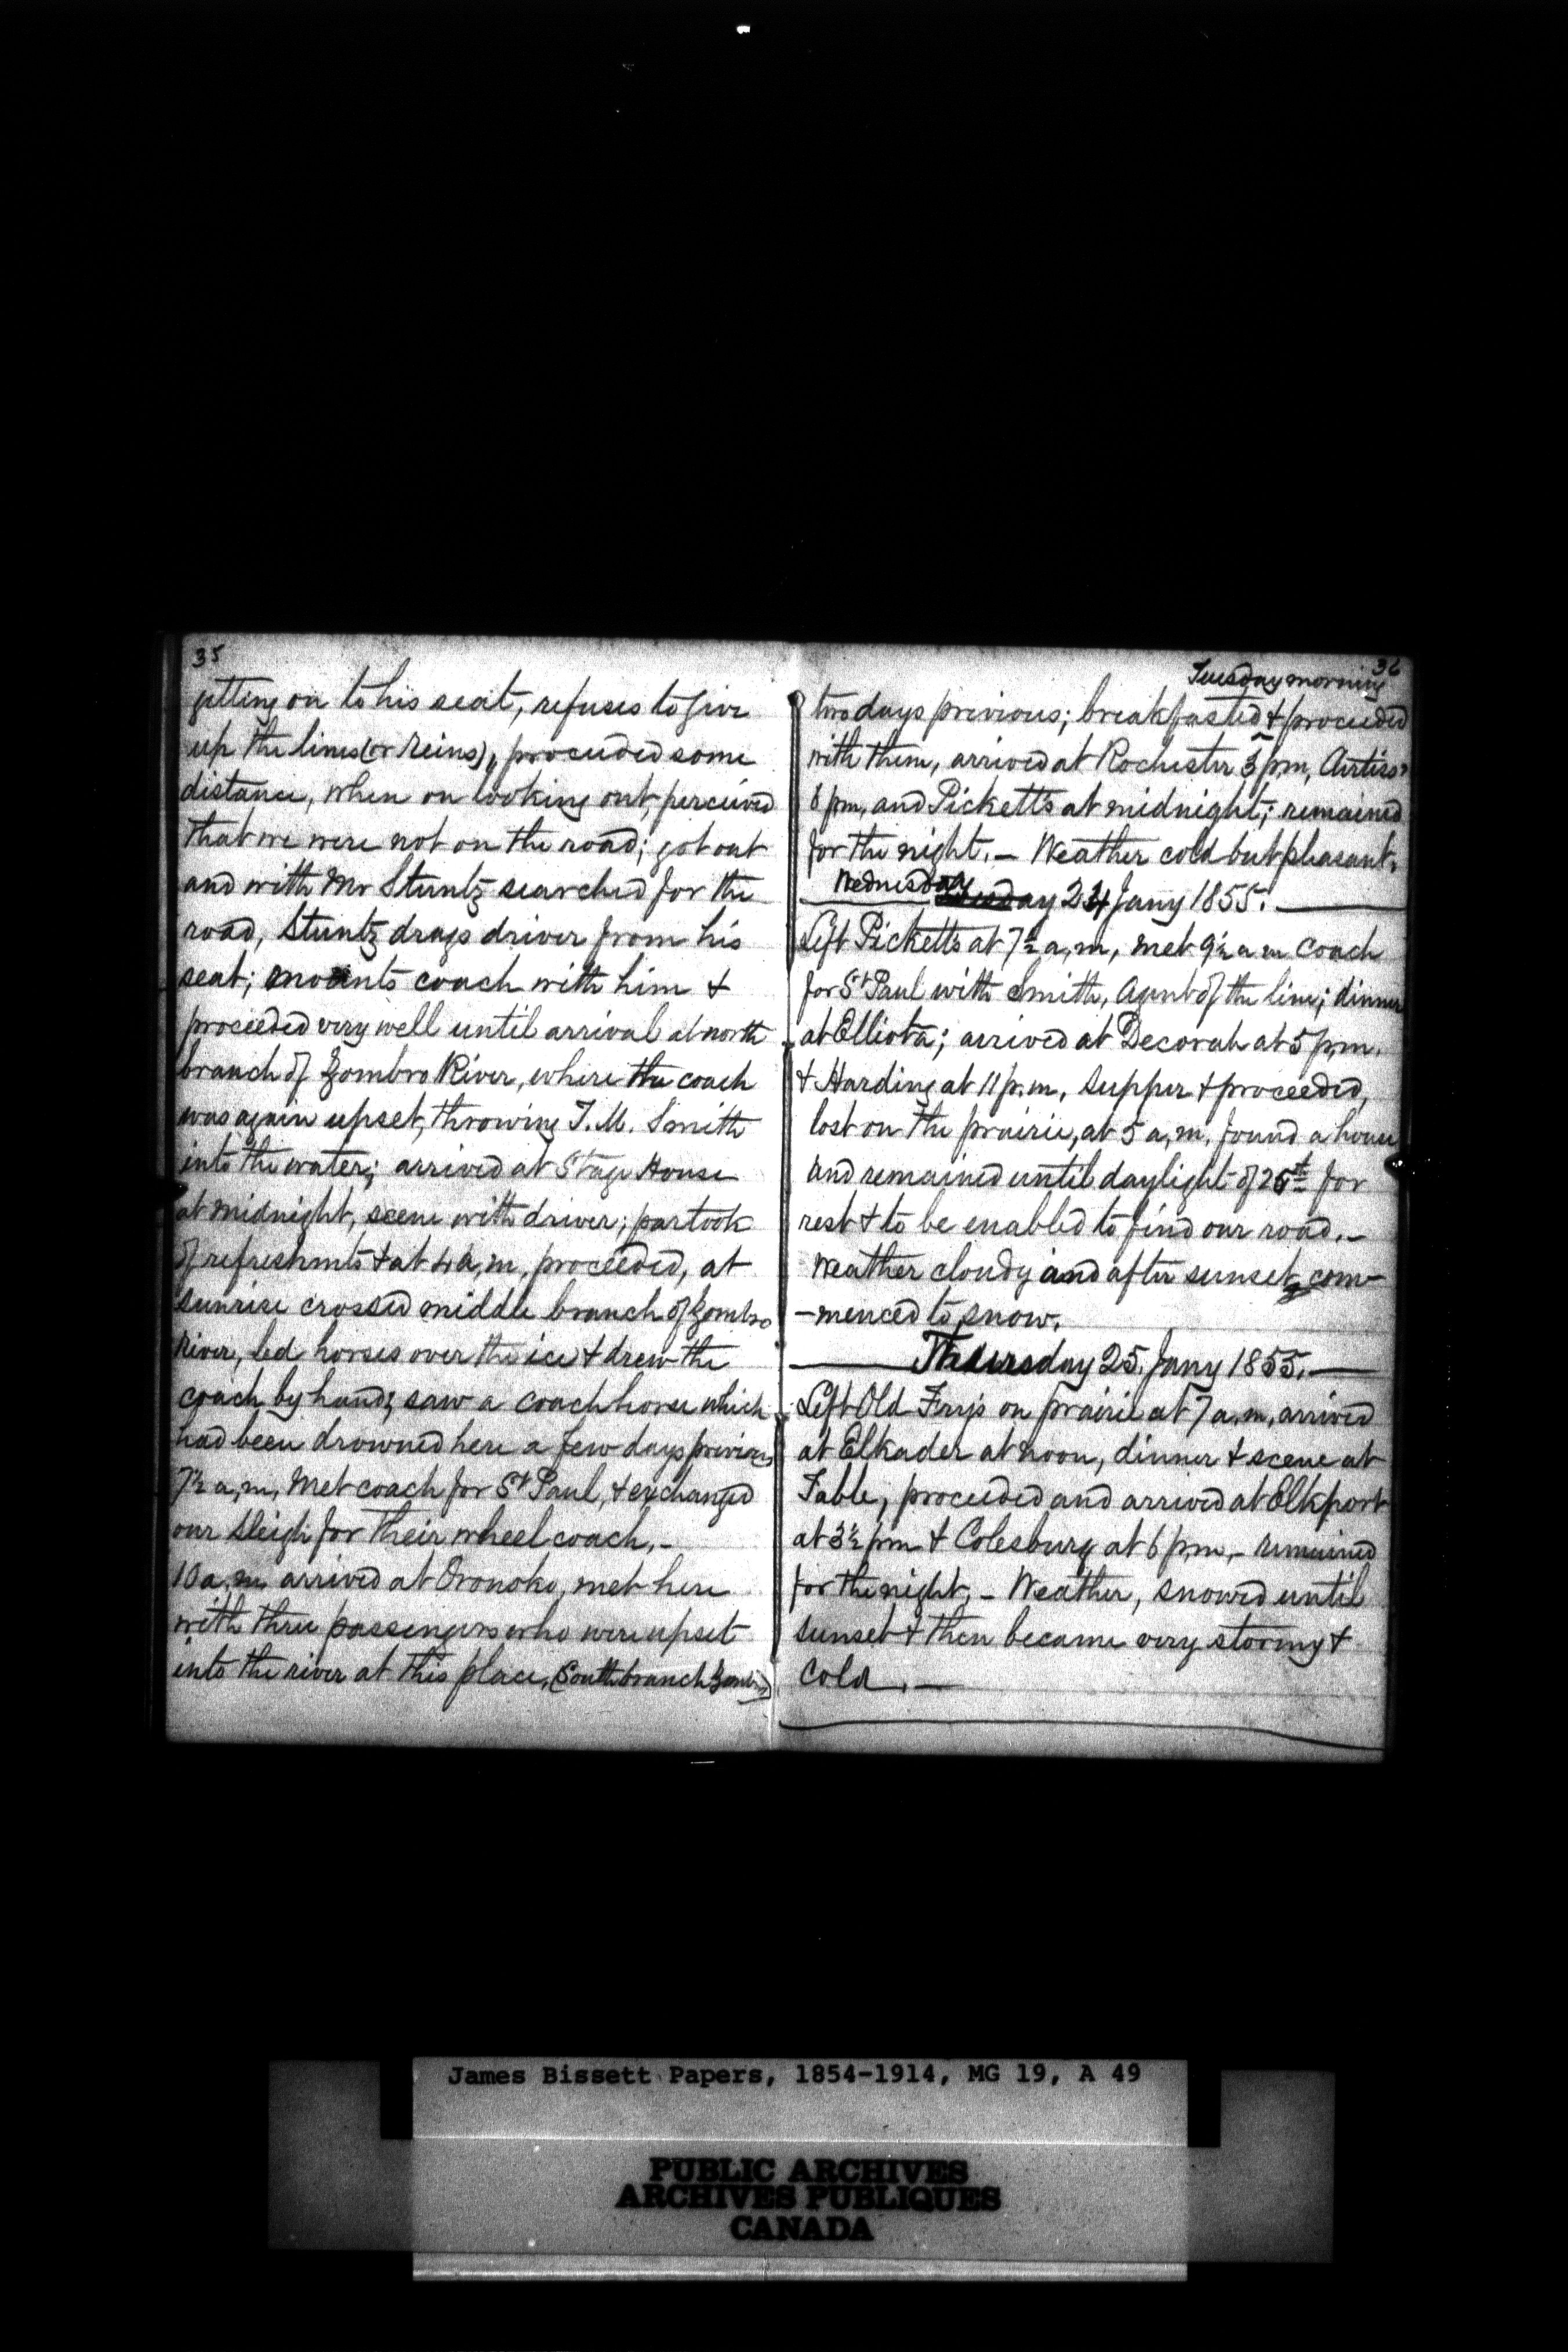 35
getting on to his seat, refuses to give
up the lines (or reins), proceeded some
distance, when on looking out, perceived
that we were not on the road; got out
and with Mr Stuntz searched for the
road, Stuntz drags driver from his
seat; mounts coach with him &
proceeded very well until arrival at north
branch of Zombro River, where the coach
was again upset, throwing T. M. Smith
into the water; arrived at Stage House
at midnight, scene with driver; partook
of refreshmts & at 4 a,m, proceeded, at
sunrise crossed middle branch of Zombro
River, led horses over the ice & drew the
coach by hand; saw a coach horse which
had been drowned here a few days previous
7½ a,m, Met coach for St Paul, & exchanged
our sleigh for their wheel coach.–
10 a,m, arrived at Oronoko, met here
with three passengers who were upset
into the river at this place, (South branch Zombro)
36
Tuesday morning
two days previous; breakfasted & proceeded
with them, arrived at Rochester 3 pm,
6 pm, and Picketts at midnight; remained
for the night.– Weather cold but pleasant.
Wednesday 24 Jany 1855.
Left Picketts at 7½ a,m, met 9½ a m coach
for St Paul with Smith, Agent of the line; dinner
at Elliota; arrived at Decorah at 5 p,m.
& Harding at 11 p.m, supper & proceeded,
lost on the prairie, at 5 a,m, found a house
and remained until daylight of 25th for
rest & to be enabled to find our road.–
Weather cloudy and after sunset, com–
–menced to snow.
Thursday 25. Jany 1855.
Left Old on prairie at 7 a.m, arrived
at Elkader at noon, dinner & scene at
Table; proceeded and arrived at Elkport
at 3½ pm & Colesburg at 6 p,m,– remained
for the night,– Weather, snowed until
sunset & then became very stormy &
cold.–
James Bissett Papers, 1854-1914, MG 19, A 49
PUBLIC ARCHIVES
ARCHIVES PUBLIQUES
CANADA